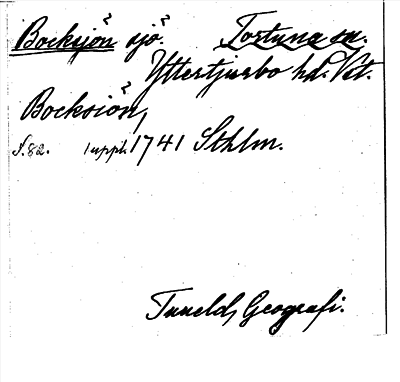 Bocksjön? sjö? Tortuna sn.
Yttertjurbo hd. Vst.
Bocksiön?,
S. 82. 1 uppl. 1741 Sthlm.
Tuneld, Geografi.